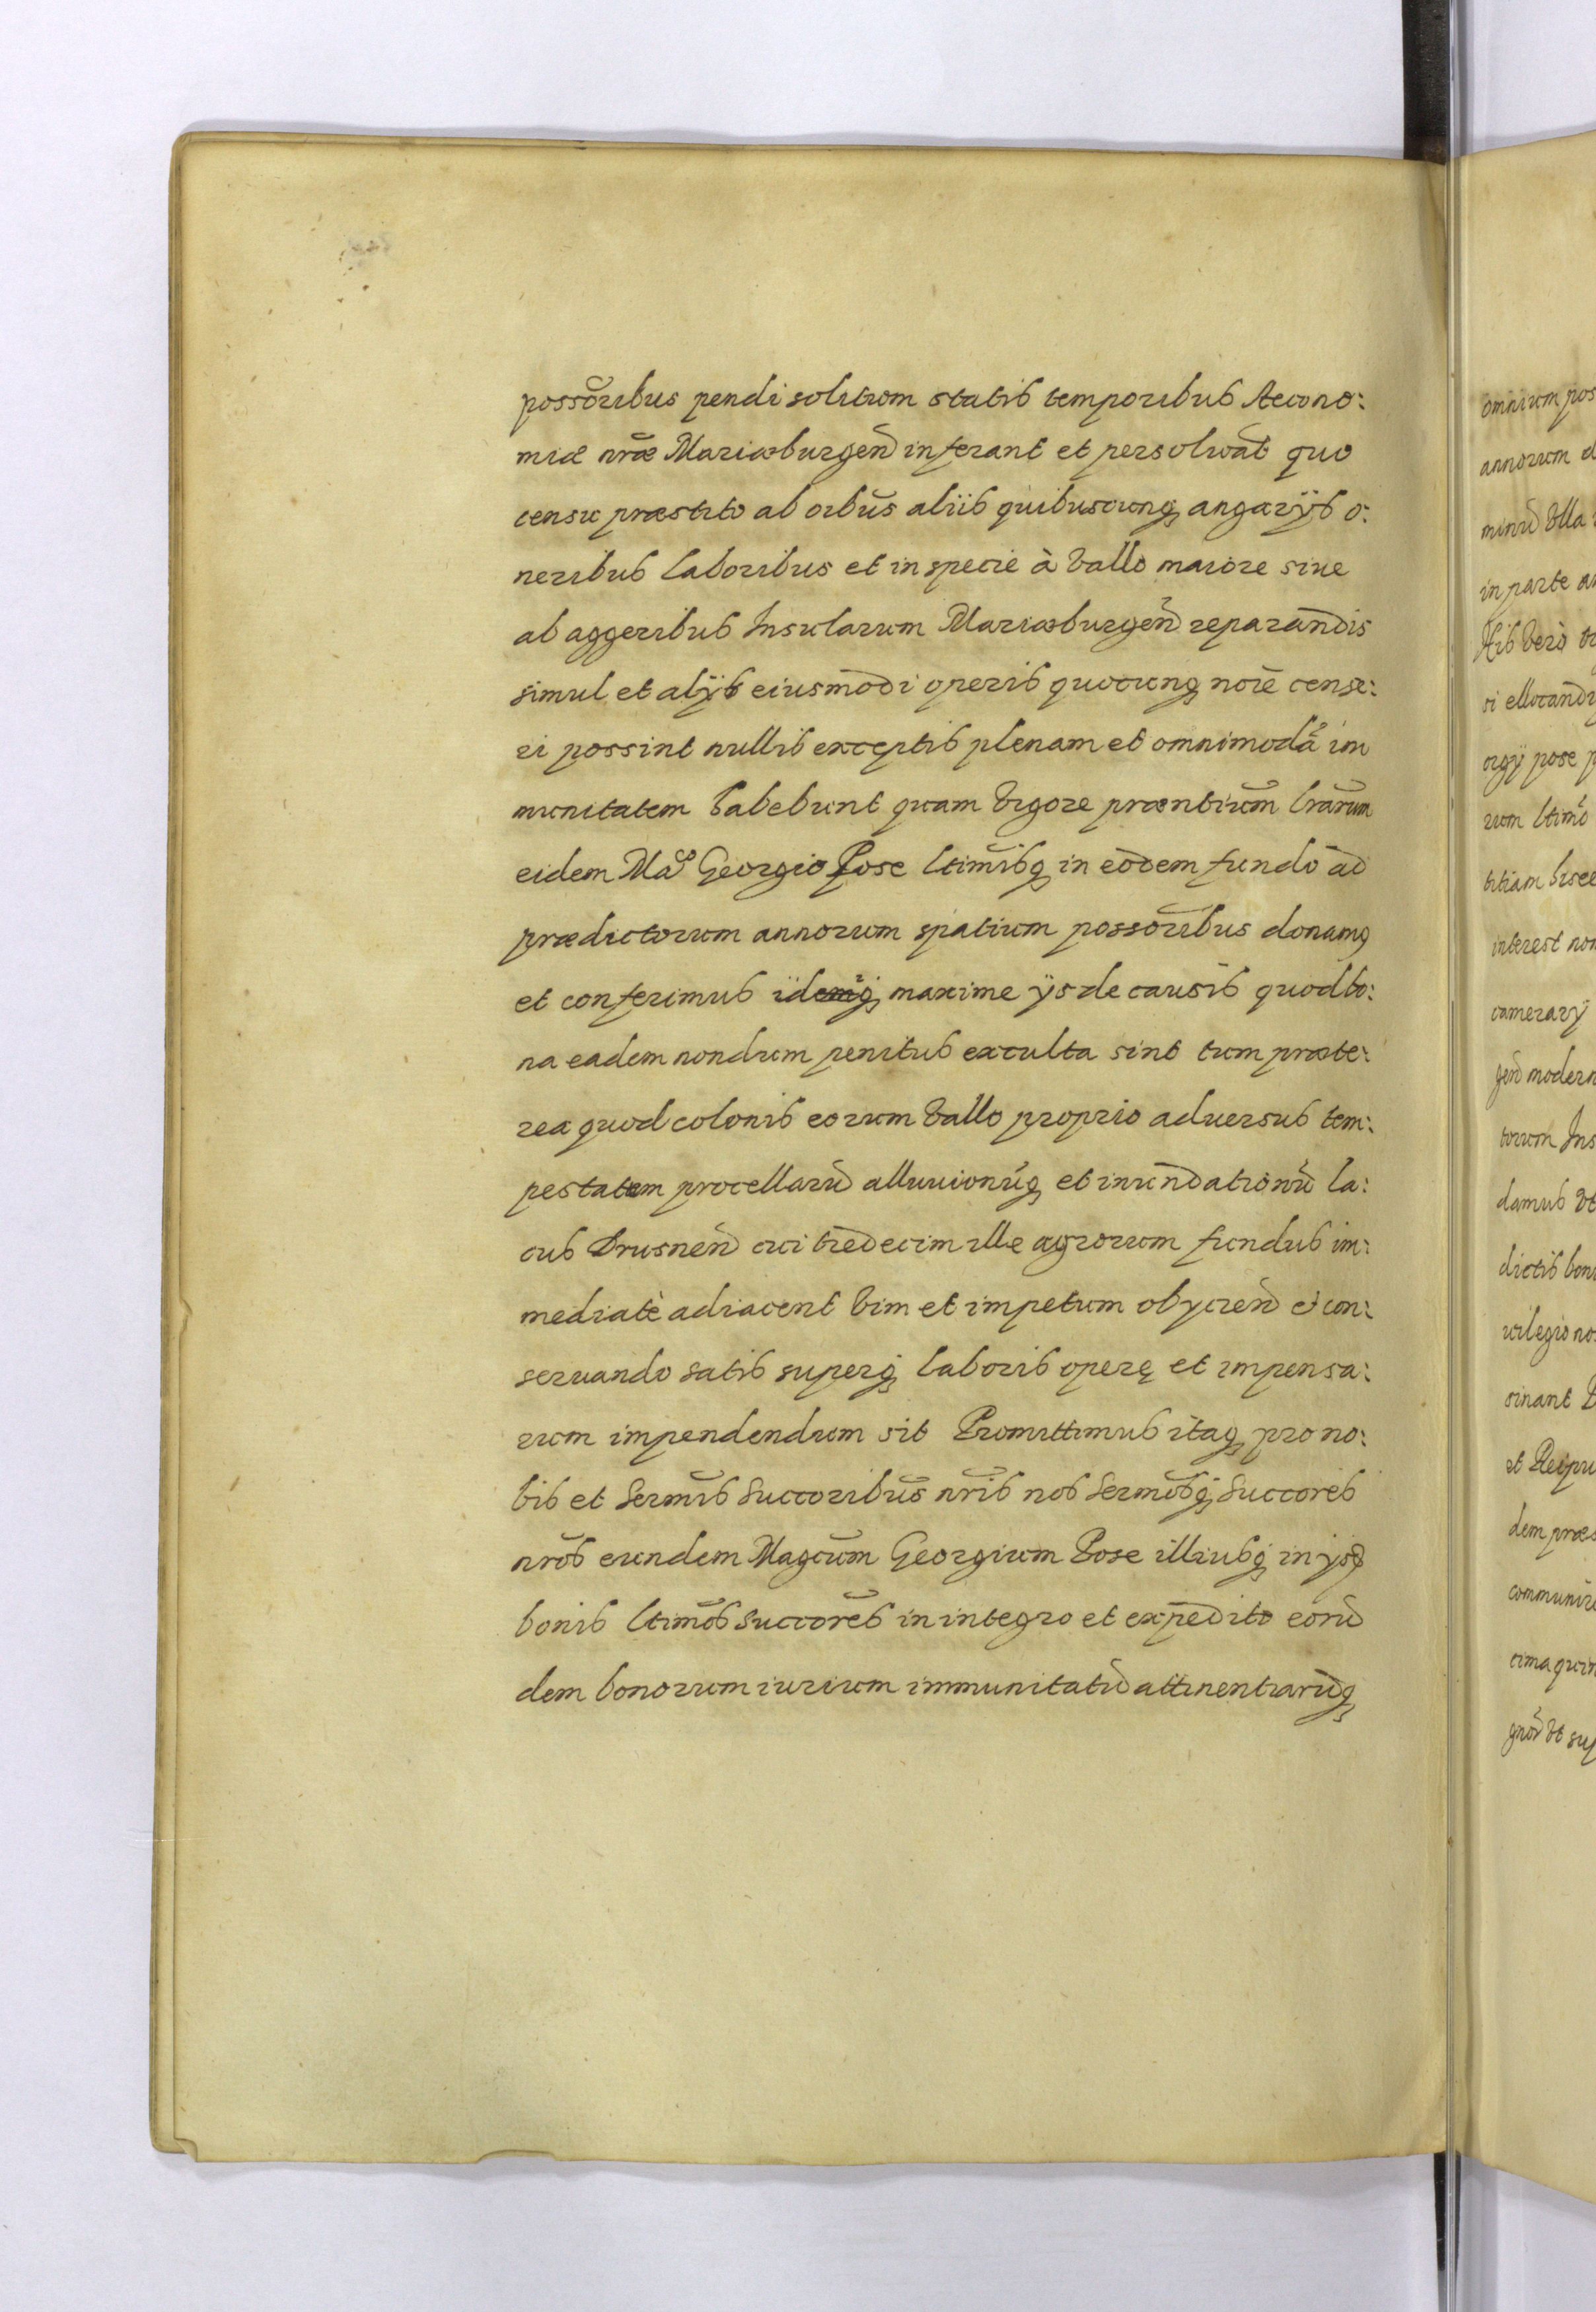 possõribus pendi solitum statis temporibus Aecono:
miæ nr̃æ Mariæburgeñ inferant et persoluãt quo
censu præstito ab oĩbus aliis quibuscunq angarÿs o:
neribus laboribus et in specie à vallo maiore siue
ab aggeribus Insularum Mariæburgeñ reparandis
simul et alÿs eiusmodi operis quocunq noĩe cense:
ri possint nullis exceptis plenam et omnimodã im
munitatem habebunt quam vigore præntium lr̃arum
eidem Mãco Georgio Pose ltimĩsq in eodem fundo ad
prædictorum annorum spatium possõribus donamq
et conferimus idq maxime ÿs de causis quod bo:
na eadem nondum penitus exculta sint tum præte:
rea quod colonis eorum vallo proprio aduersus tem:
pestatem procellarũ alluuionũq et inundationũ la:
cus Drusneñ cui tredecim ille agrorum fundus im:
mediatè adiacent vim et impetum obycieñ ei con:
seruando satis superq laboris operę et impensa:
rum impendendum sit Promittimus itaq pro no:
bis et Sermĩs Succoribũs nr̃is nos Sermõsq Succores
nr̃os eundem Magcũm Georgium Pose illiusq in ysd
bonis ltimõs Succorẽs in integro et expedito eorũ
dem bonorum iurium immunitatũ attinentiarũq
omnium pos
annorum d
minũ vlla
in parte
His verò
si ellocand
orgÿ pose p
rum ltimõ
titiam
interest non
camerarÿ
geñ modern
torum Ins
damus vt
dictis boni
uilegio no
sinant
et Reipu
dem præs
communire
cima quin
gnõr vt sup